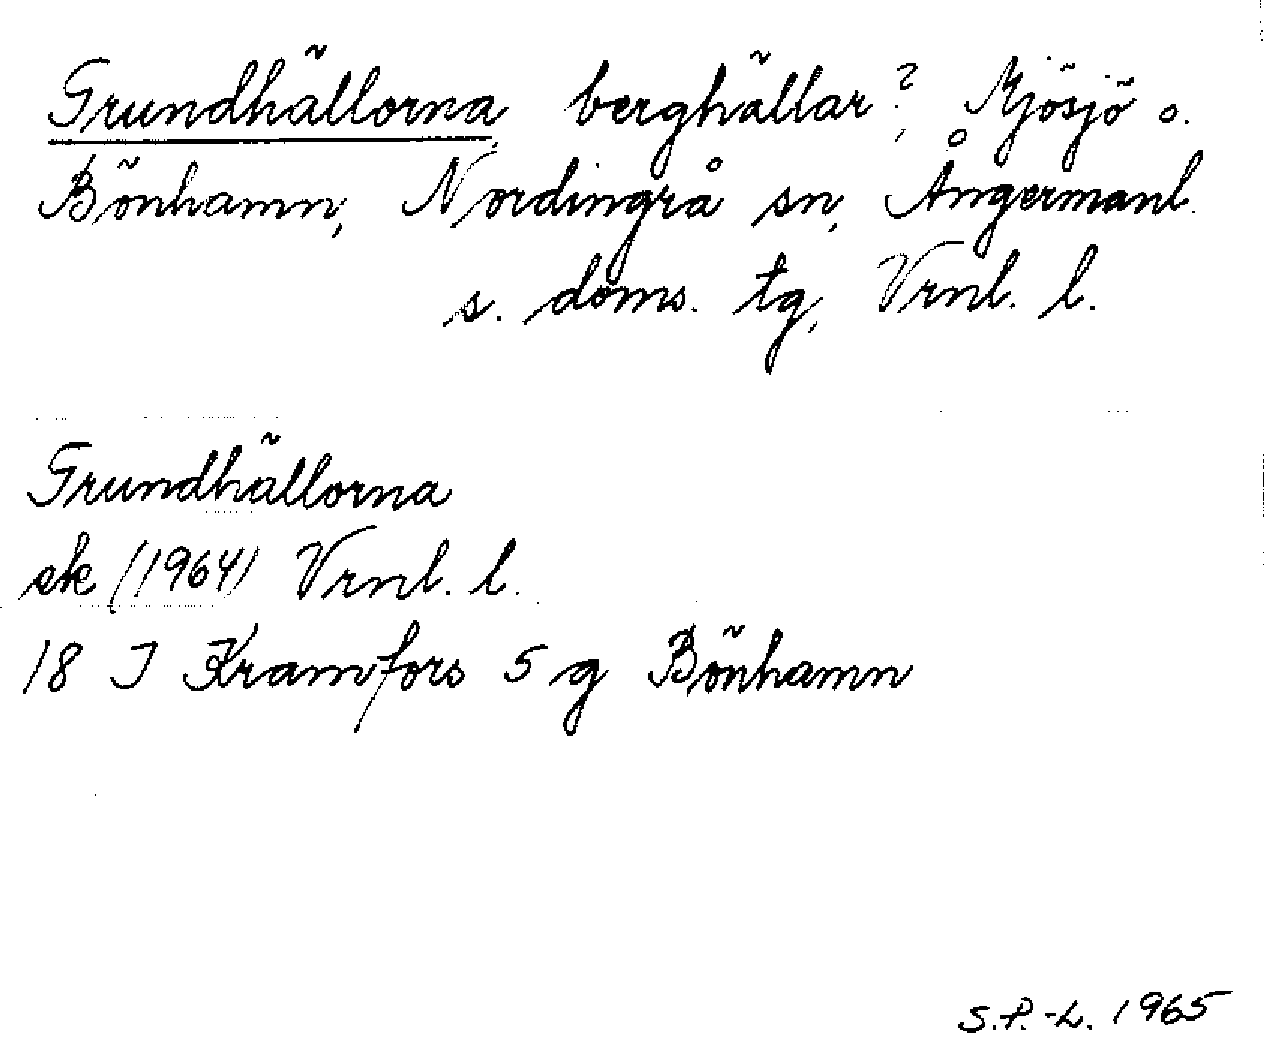 Grundhällorna, berghällar?, Mjösjö o.
Bönhamn, Nordingrå sn, Ångermanl.
s. doms. tg, Vrnl. l.
Grundhällorna
ek (1964) Vrnl. l.
18 J Kramfors 5 g Bönhamn
S.P.-L. 1965